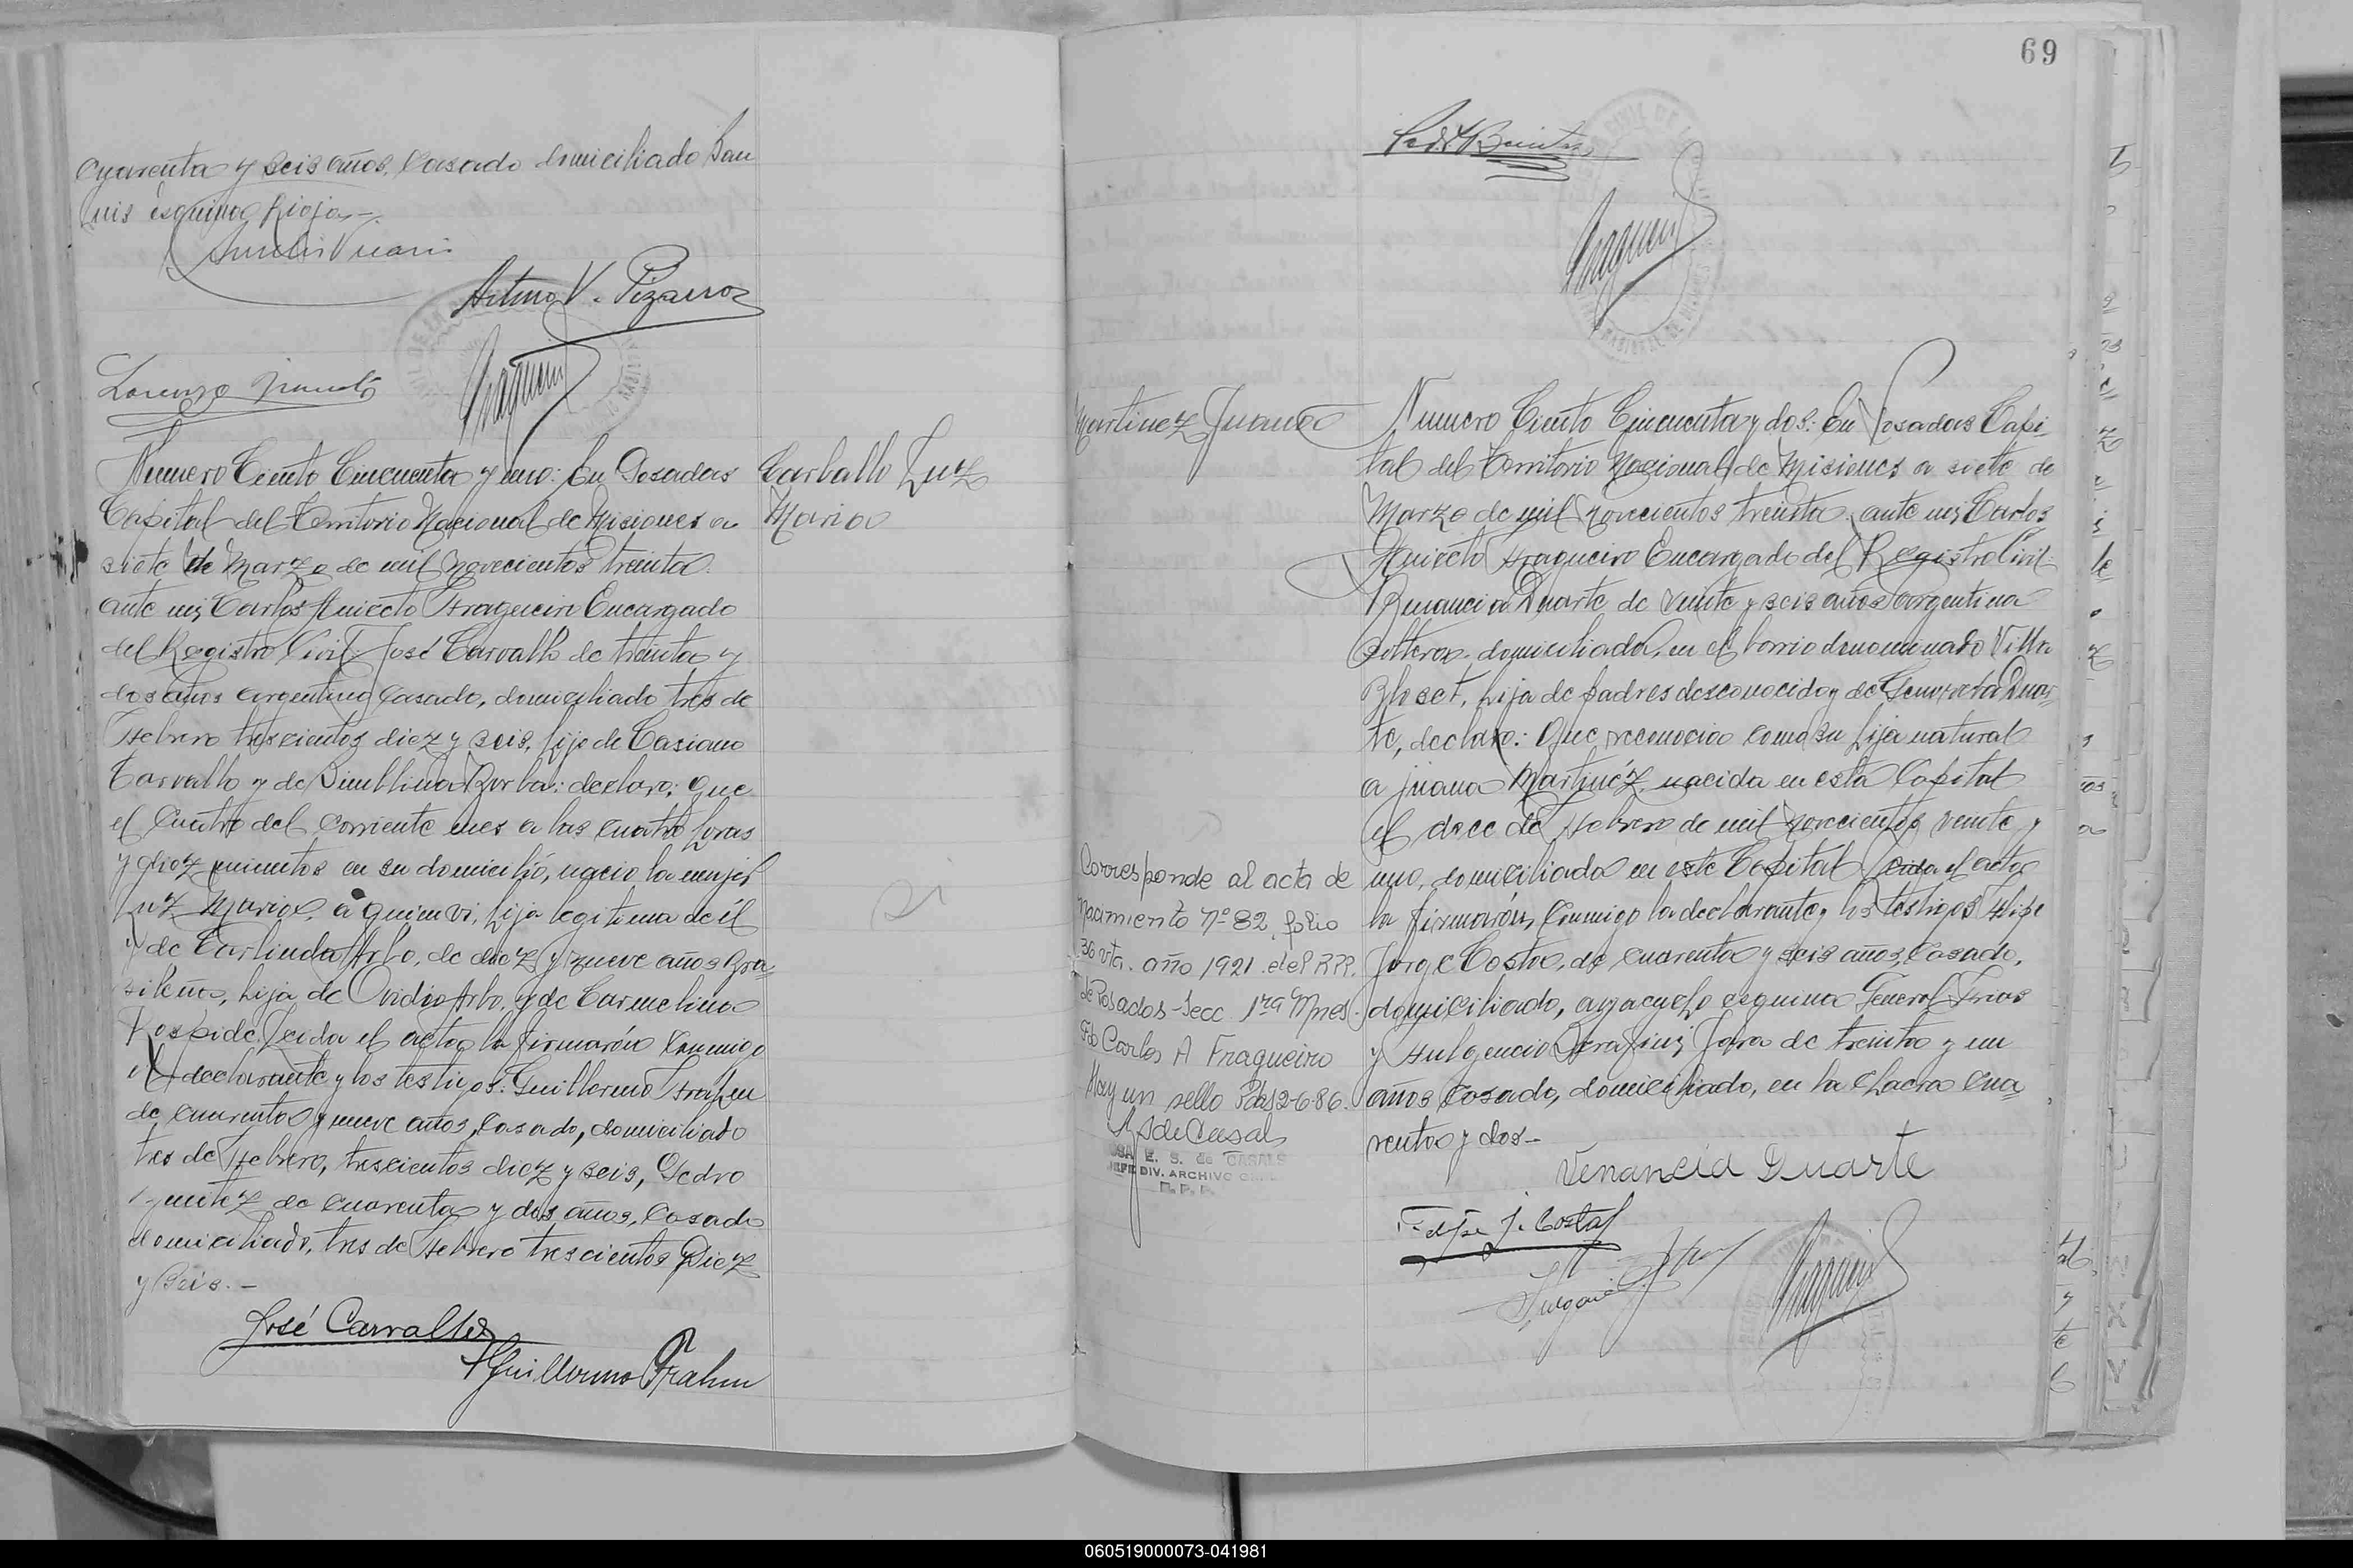 cuarenta y seis años, casado domiciliado San
Luis esquina Rioja.-
Arturo V. Pizarro
Lorenzo
Numero Ciento Cincuenta y uno: En Posadas
Capital del Territorio Nacional de Misiones a
siete de Marzo de mil novecientos treinta.
ante mi, Carlos Aniceto Fragueiro Encargado
del Registro Civil, José Carvallo de treinta y
dos años argentino casado, domiciliado tres de
Febrero trescientos diez y seis, hijo de Casiano
Carvallo y de Borba: declaro: Que
el cuatro del corriente mes a las cuatro horas
y diez minutos en su domicilio, nacio la mujer
Luz Maria, a quien vi, hija legitima de él
y de Carlinda Arbo, de diez y nueve años Bra-
sileña, hija de Ovidio Arbo, y de Carmelina
Leida el acta, la firmarón conmigo
el declarante y los testigos: Guillermo Frahm
de cuarenta y nueve años, casado, domiciliado
tres de Febrero, trescientos diez y seis, Pedro
de cuarenta y dos años, casado
domiciliado, tres de Febrero trescientos Diez
y Seis.-
José Carvallo
Guillermo Frahm
Carballo Luz
Maria
69
Martinez Juana
Numero Ciento Cincuenta y dos: En Posadas Capi-
tal del Territorio Nacional de Misiones a siete de
Marzo de mil novecientos treinta, ante mi, Carlos
Aniceto Fragueiro Encargado del Registro Civil
Venancia Duarte de veinte y seis años argentina
soltera, domiciliada, en el barrio denominado Villa
Bloset, hija de padres desconocido y de Duar-
te, declaro: Que reconocia como su hija natural
a Juana Martinéz, nacida en esta Capital
el doce de Febrero de mil novecientos veinte y
uno, domiciliada en este Capital Leida el acta
la firmarón, conmigo la declarante, y los testigos Felipe
Jorge Costa, de cuarenta y seis años, casado,
domiciliado, ayacucho esquina General Frias
y Fulgencio Serafini Jara de treinta y un
años casado, domiciliado, en la chacra cua
renta y dos-
Venancia Duarte
Felipe J. Costa
Corresponde al acta de
nacimiento Nº 82, folio
30 vta. año 1921 del RPP.
de Posadas-Secc 1ra Mnes.
Fdo Carlos A Fragueiro
Hay un sello Pdas 2-6-86.
E. S. de CASALS
JEFE DIV. ARCHIVO
R.P.P.
060519000073-041981